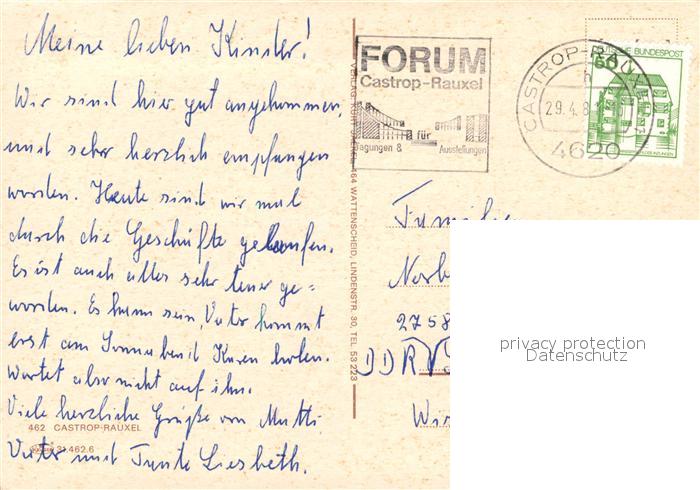 Meine lieben Kinder!
Wir sind hier gut angekommen,
und sehr herzlich empfangen
worden. Heute sind wir mal
durch die Geschäfte gelaufen.
Es ist auch alles sehr teuer ge=
worden. Es kann sein, Vater kommt
erst am Sonnabend Karen holen.
Wartet aber nicht auf ihn.
Viele herzliche Grüße von Mutti
Vater und Tante Liesbeth.
462 CASTROP-RAUXEL
31.462.6
464 WATTENSCHEID, LINDENSTR. 30, TEL 53 223
FORUM
Castrop-Rauxel
für
Tagungen & Ausstellungen
CASTROP-RAUXEL
29.4.8
4620
DEUTSCHE BUNDESPOST
50
Familie
2758
DDR
privacy protection
Datenschutz